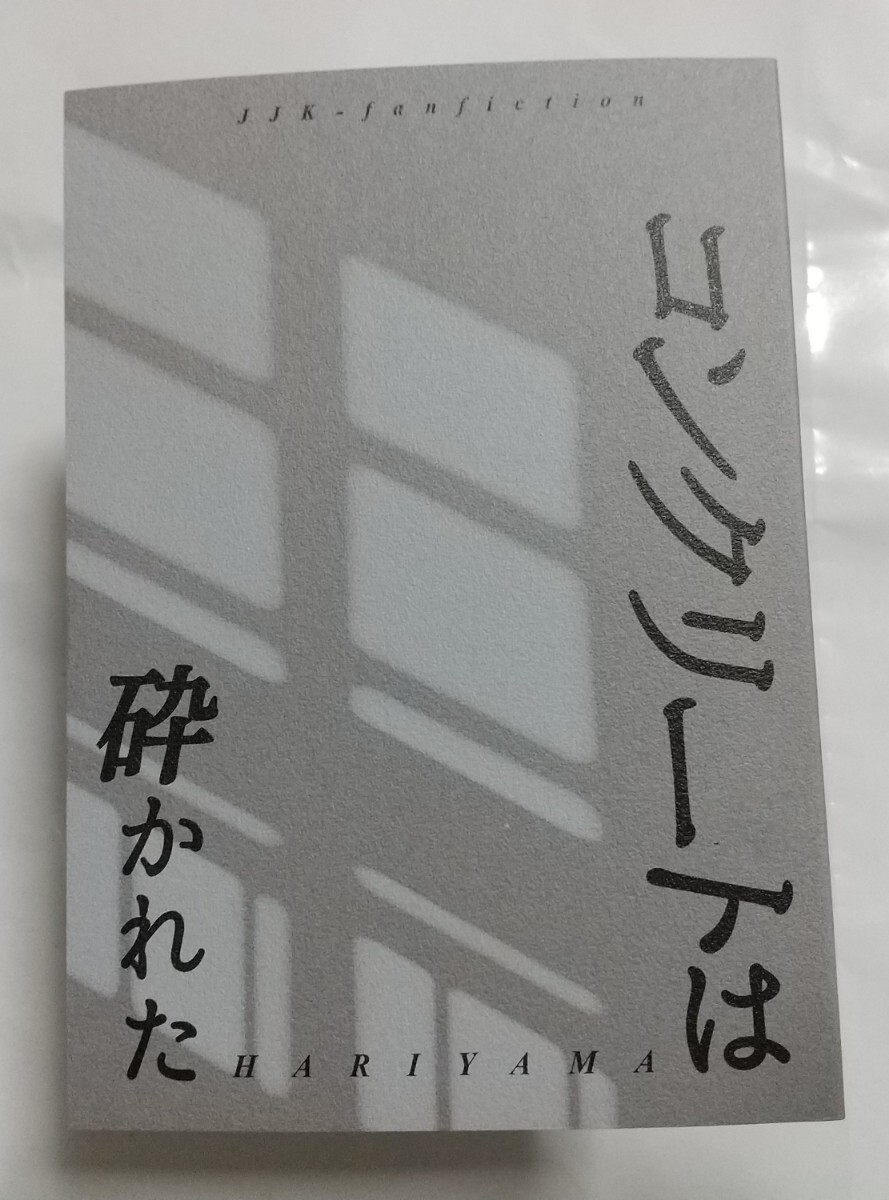 JJK-fanfiction
コンクリートは
砕かれた
HARIYAMA